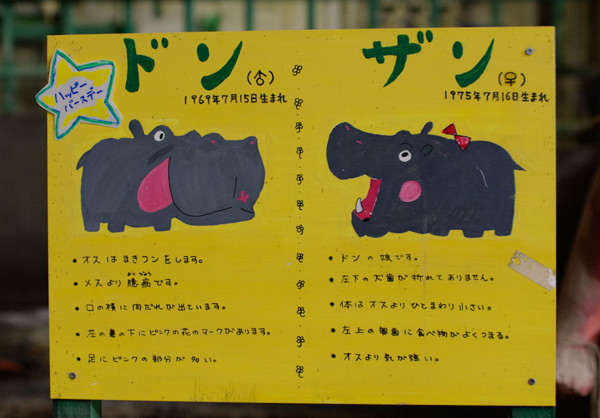 ハッピー
バースデー
ドン(♂)
1969年7月15日生まれ
・オスはまきフンをします。
おくびょう
・メスより臆病です。
・口の横に肉だれが出ています。
・左の鼻の下にピンクの花のマークがあります。
・足にピンクの部分が多い。
ザン(♀)
1975年7月16日生まれ
・ドンの娘です。
・左下の犬歯が折れてありません。
・体はオスよりひとまわり小さい。
・左上の奥歯に食べ物がよくつまる。
・オスより気が強い。